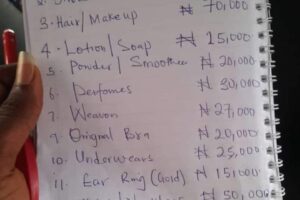 ₦ 70,000
3. Hair/Makeup
4. Lotion/Soap ₦ 15,000
5 Powder/Smoothee ₦ 20,000
6. Perfomes ₦ 30,000
7. Weavon ₦ 27,000
9. Original Bra ₦ 20,000
10. Underwears ₦ 25,000
11. Ear Ring (Gold) ₦ 15,000
₦ 50,000